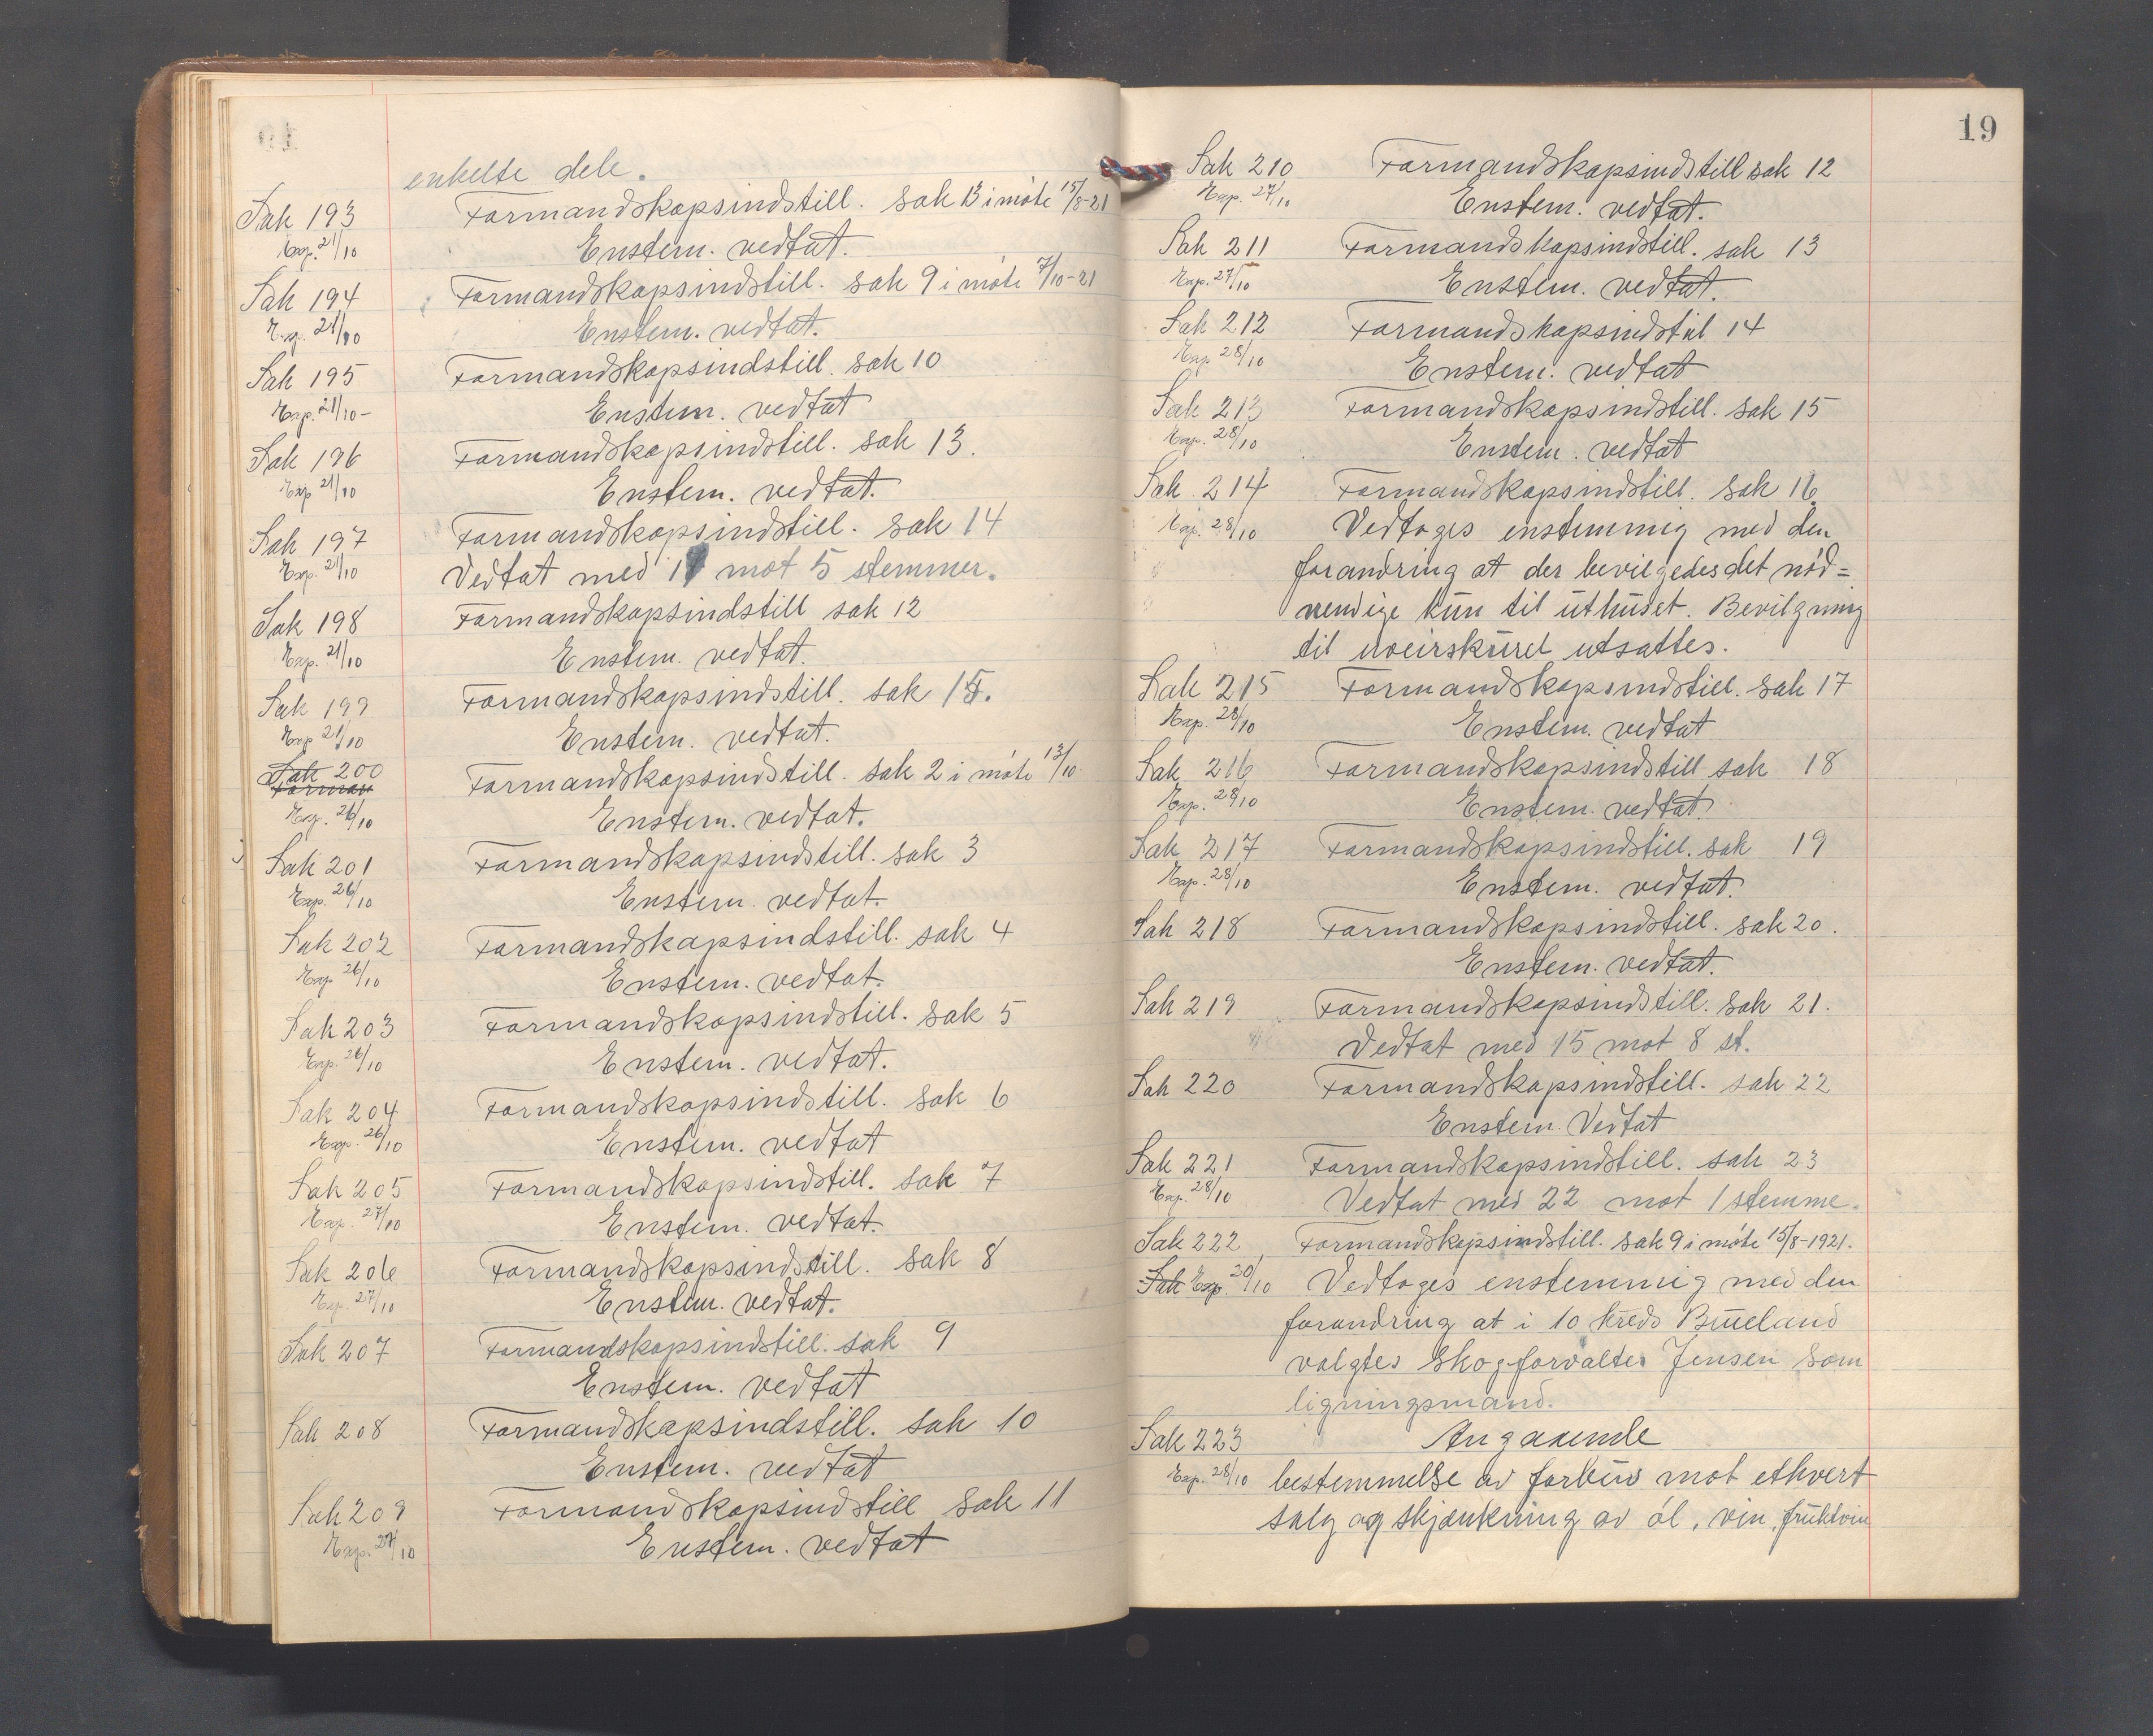 enkelte dele.
Sak 193 Formandskapsindstill. sak 13 i møte 15/8-21
Exp. 21/10 Enstem. vedtat.
Sak 194 Formandskapsindstill. sak 9 i møte 7/10-21
Exp. 21/10 Enstem. vedtat.
Sak 195 Formandskapsindstill. sak 10
Exp. 21/10- Enstem. vedtat
Sak 196 Formandskapsindstill. sak 13.
Exp 21/10 Enstem. vedtat.
Sak 197 Formandskapsindstill. sak 14
Exp. 21/10 Vedtat med mot 5 stemmer.
Sak 198 Formandskapsindstill sak 12
Exp. 21/10 Enstem. vedtat.
Sak 199 Formandskapsindstill. sak 15.
Exp 21/10 Enstem. vedtat.
Sak 200 Formandskapsindstill. sak 2 i møte 13/10.
Forman
Exp. 26/10 Enstem. vedtat.
Sak 201 Formandskapsindstill. sak 3
Exp. 26/10 Enstem. vedtat.
Sak 202 Formandskapsindstill. sak 4
Exp. 26/10 Enstem. vedtat.
Sak 203 Formandskapsindstill. sak 5
Exp. 26/10 Enstem. vedtat.
Sak 204 Formandskapsindstill. sak 6
Exp. 26/10 Enstem. vedtat
Sak 205 Formandskapsindstill. sak 7
Exp. 27/10 Enstem. vedtat.
Sak 206 Formandskapsindstill. sak 8
Exp. 27/10 Enstem. vedtat.
Sak 207 Formandskapsindstill. sak 9
Enstem. vedtat
Sak 208 Formandskapsindstill. sak 10
Enstem. vedtat
Sak 209 Formandskapsindstill sak 11
Exp. 27/10 Enstem. vedtat
19
Sak 210 Formandskapsindstill sak 12
Exp. 27/10 Enstem. vedtat.
Sak 211 Formandskapsindstill. sak 13
Exp. 27/10 Enstem. vedtat.
Sak 212 Formandskapsindstil 14
Exp 28/10 Enstem. vedtat
Sak 213 Formandskapsindstill. sak 15
Exp. 28/10 Enstem. vedtat
Sak 214 Formandskapsindstill. sak 16
Exp. 28/10 Vedtoges enstemmig med den
forandring at der bevilgedes det nød=
vendige kun til uthuset. Bevilgning
til uveirskuret utsattes.
Sak 215 Formandskapsindstill. sak 17
Exp. 28/10 Enstem. vedtat
Sak 216 Formandskapsindstill sak 18
Exp. 28/10 Enstem. vedtat.
Sak 217 Formandskapsindstill. sak 19
Exp. 28/10 Enstem. vedtat.
Sak 218 Formandskapsindstill. sak 20.
Enstem. vedtat.
Sak 219 Formandskapsindstill. sak 21.
Vedtat med 15 mot 8 st.
Sak 220 Formandskapsindstill. sak 22
Enstem. Vedtat
Sak 221 Formandskapsindstill. sak 23
Exp. 28/10 Vedtat med 22 mot 1 stemme.
Sak 222 Formandskapsindstill. sak 9 i møte 15/8-1921.
Sak Exp. 20/10 Vedtoges enstemmig med den
forandring at i 10 kreds
valgtes skogforvalter Jensen som
ligningsmand.
Sak 223 Angaaende
Exp. 28/10 bestemmelse av forbud mot ethvert
salg og skjænkning av øl, vin, fruktvin